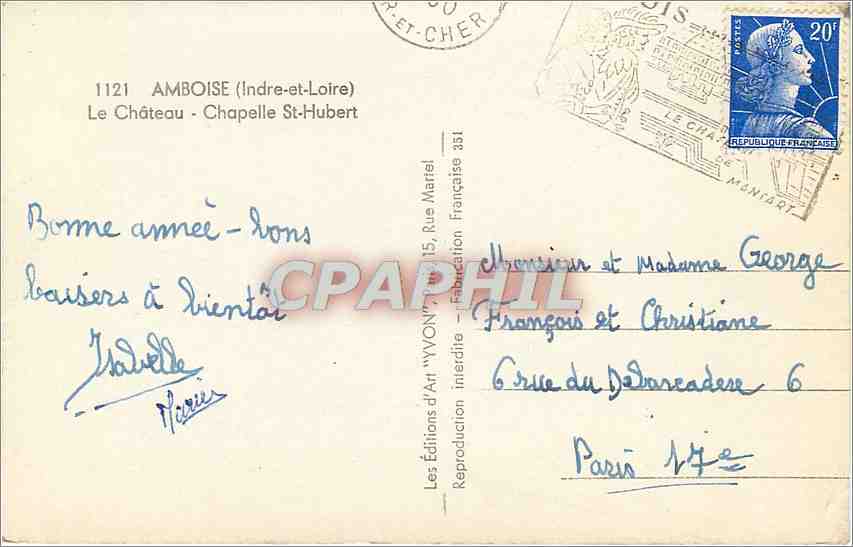 1121 AMBOISE (Indre-et-Loire)
Le Château - Chapelle St-Hubert
Bonne année - bons
baisers à bientôt
Isabelle
Les Éditions d'Art "YVON", 15, Rue Martel
Reproduction interdite - Fabrication Française 351
R-ET-CHER
OIS
LE CHÂT
DE
MANSART
20F
POSTES
REPUBLIQUE FRANÇAISE
Monsieur et Madame George
François et Christiane
6 rue du Debarcadere 6
Paris 17e
CPAPHIL